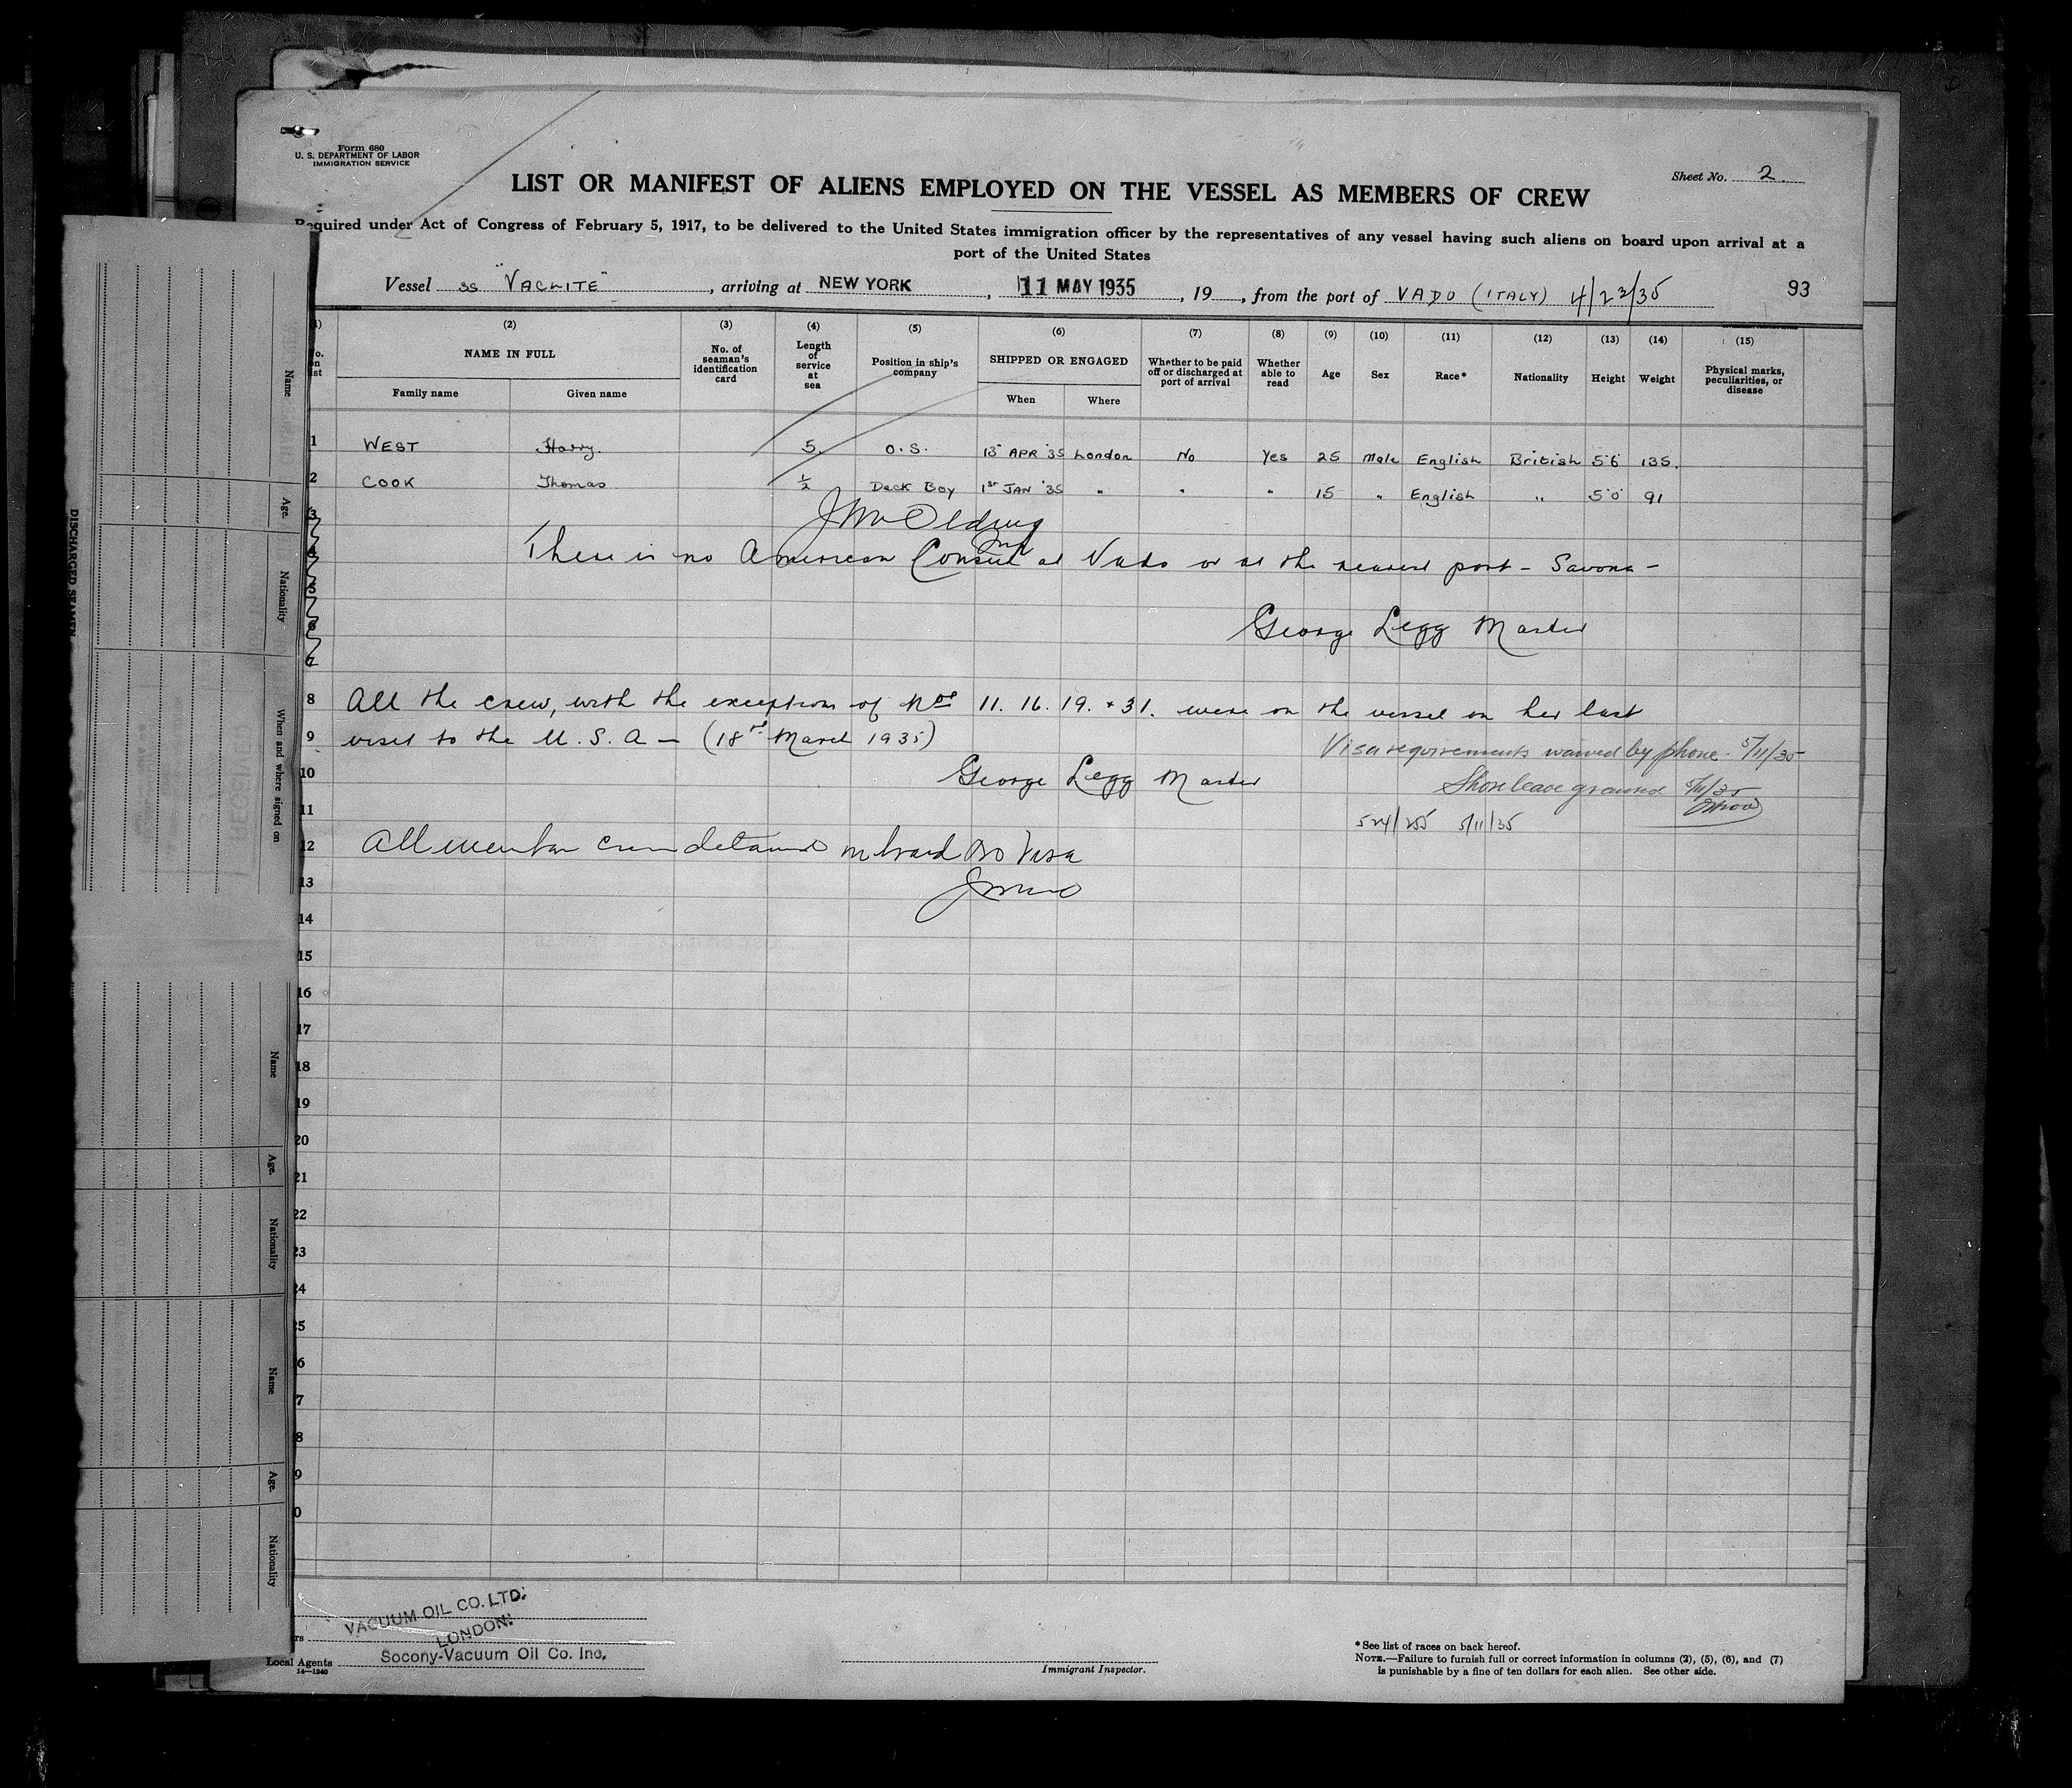 Form 680
U. S. DEPARTMENT OF LABOR
IMMIGRATION SERVICE
Sheet No. 2.
LIST OR MANIFEST OF ALIENS EMPLOYED ON THE VESSEL AS MEMBERS OF CREW
Required under Act of Congress of February 5, 1917, to be delivered to the United States immigration officer by the representatives of any vessel having such aliens on board upon arrival at a
port of the United States
Vessel ss "VACLITE", arriving at NEW YORK, 11 MAY 1935, 19, from the port of VADO (ITALY) 4/23/35 93
(2) (3) (4) (5) (6) (7) (8) (9) (10) (11) (12) (13) (14) (15)
NAME IN FULL No. of seaman's identification card Length of service at sea Position in ship's company SHIPPED OR ENGAGED Whether to be paid off or discharged at port of arrival Whether able to read Age Sex Race* Nationality Height Weight Physical marks, peculiarities, or disease
Family name Given name When Where
1 WEST Harry. 5. O.S. 13 APR '35 London No Yes 25 Male English British 5'6 135.
2 COOK Thomas ½ Deck Boy 1st JAN '35 " " " 15 " English " 5'0 91
3
4 There is no American Consul at Vado or at the nearest port - Savona -
5
6 George Legg Master
7
8 All the crew, with the exception of Nos 11. 16. 19. + 31. were on the vessel on her last
9 visit to the U. S. A - (18th March 1935)
Visa requirements waived by phone. 5/11/35
10 George Legg Master
Shore leave granted 5/11/35
11
5/11/35
12 All member crew detained on board no Visa
13
14
15
16
17
18
19
20
21
22
23
24
5
6
7
8
9
0
VACUUM OIL CO. LTD.
LONDON.
Local Agents Socony-Vacuum Oil Co. Inc.
14—1240
Immigrant Inspector.
* See list of races on back hereof.
NOTE.—Failure to furnish full or correct information in columns (2), (5), (6), and (7)
is punishable by a fine of ten dollars for each alien. See other side.
DISCHARGED SEAMEN
Name
Age.
Nationality
When and where signed on
Name
Age.
Nationality
Name
Age.
Nationality